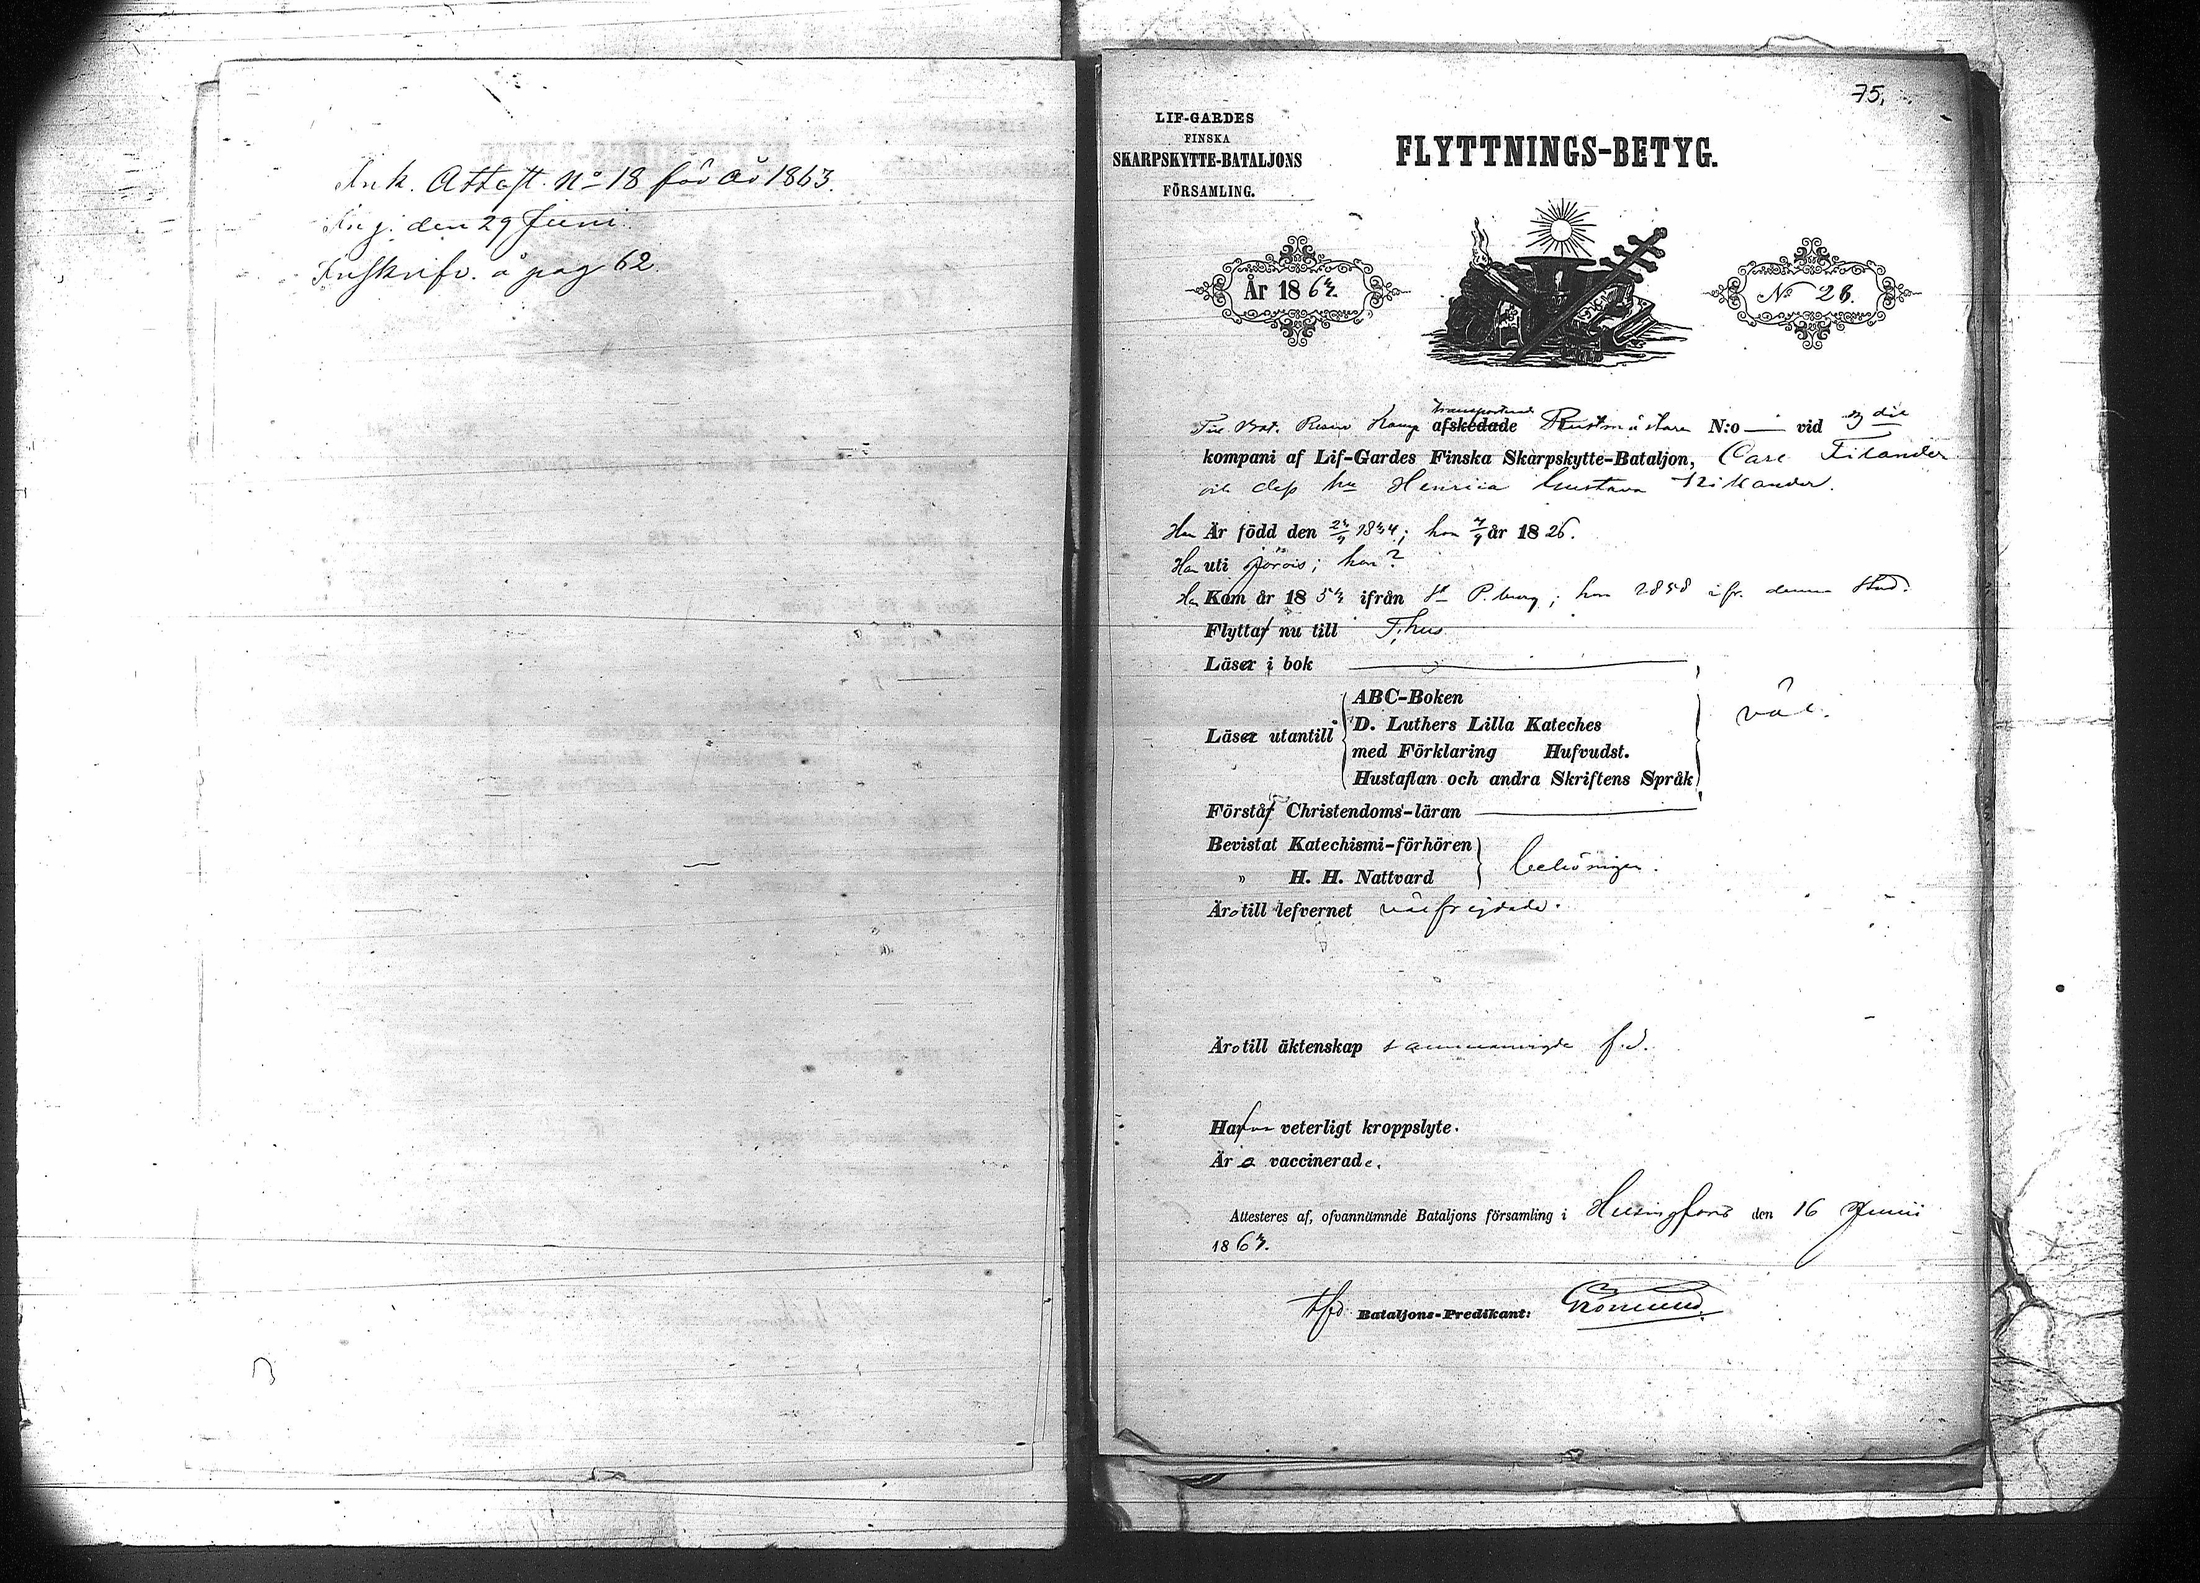 Ank. Attest. No 18 för år 1863.
Ing. den 29 Juni.
Inskrifv. å pag 62.
75.
LIF-GARDES
FINSKA
SKARPSKYTTE-BATALJONS
FÖRSAMLING.
FLYTTNINGS-BETYG.
År 1863.
No 26.
transporterade
Till Bat. Reserv Komp afskedade Rustmästare N:o — vid 3 die
kompani af Lif-Gardes Finska Skarpskytte-Bataljon, Carl Filander
och dess hu Henrica Gustava Nikander.
Han Är född den 1834; hon år 1826.
Han uti Jorois; hon?
Han Kom år 1853 ifrån St P.burg; hon 1858 ifr. denna Stad.
Flytta nu till T.hus
Läser i bok
ABC-Boken
Läser utantill D. Luthers Lilla Kateches väl.
med Förklaring Hufvudst.
Hustaflan och andra Skriftens Språk
Förstå Christendoms-läran
Bevistat Katechismi-förhören
" H. H. Nattvard behörigen.
Äro till lefvernet välfrejdade.
Äro till äktenskap sammanvigde
Hafva veterligt kroppslyte.
Äro vaccinerade.
Attesteres af, ofvannämnde Bataljons församling i Helsingfors den 16 Junii
1863.
Bataljons-Predikant: